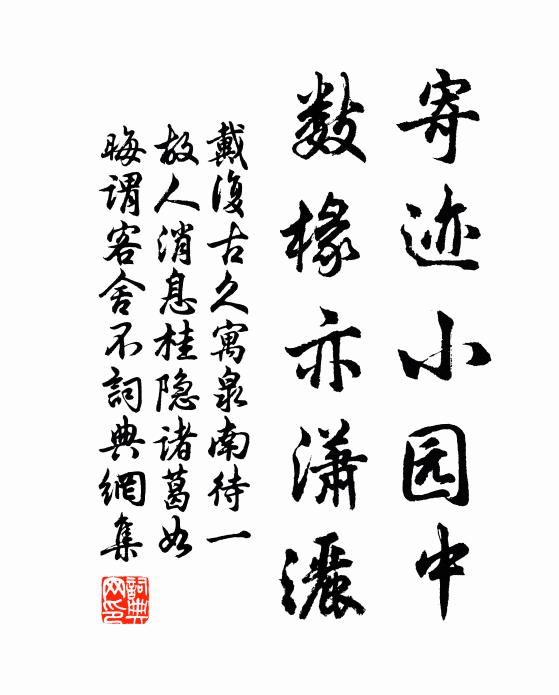 寄迹小园中
数椽亦潇灑
戴復古久寓泉南待一
故人消息桂隐诸葛如
晦谓客舍不詞典網集
詞典網印